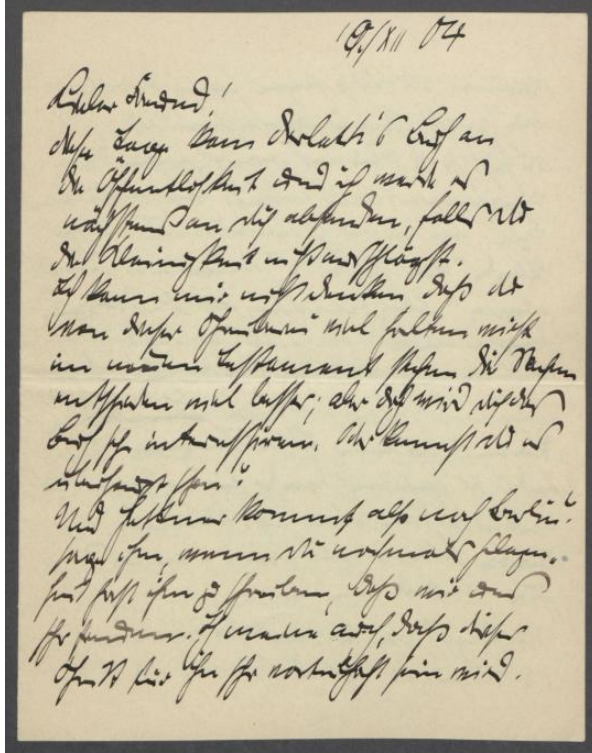 19/XII 04
Lieber Freund!
diese Tage kam Scerlatti's Buch an
die Öffentlichkeit und ich werde es
nächstens an dich absenden, falls du
die Kleinigkeit nicht ausschlägst.
Ich kann mir nicht denken daß du
von dieser Schreiberei viel halten wirst
im neuen Testament stehen die Sachen
entschieden viel besser; aber doch wird dich das
Buch sehr interessiren. Oder kennst du es
überhaupt schon?
Und Hettner kommt also nach Berlin?
sage ihm, wenn du nochmals Gelegen-
heit hast ihm zu schreiben, daß wir uns
sehr freuen. Ich meine auch, daß dieser
Schritt für ihn sehr vorteilhaft sein wird.